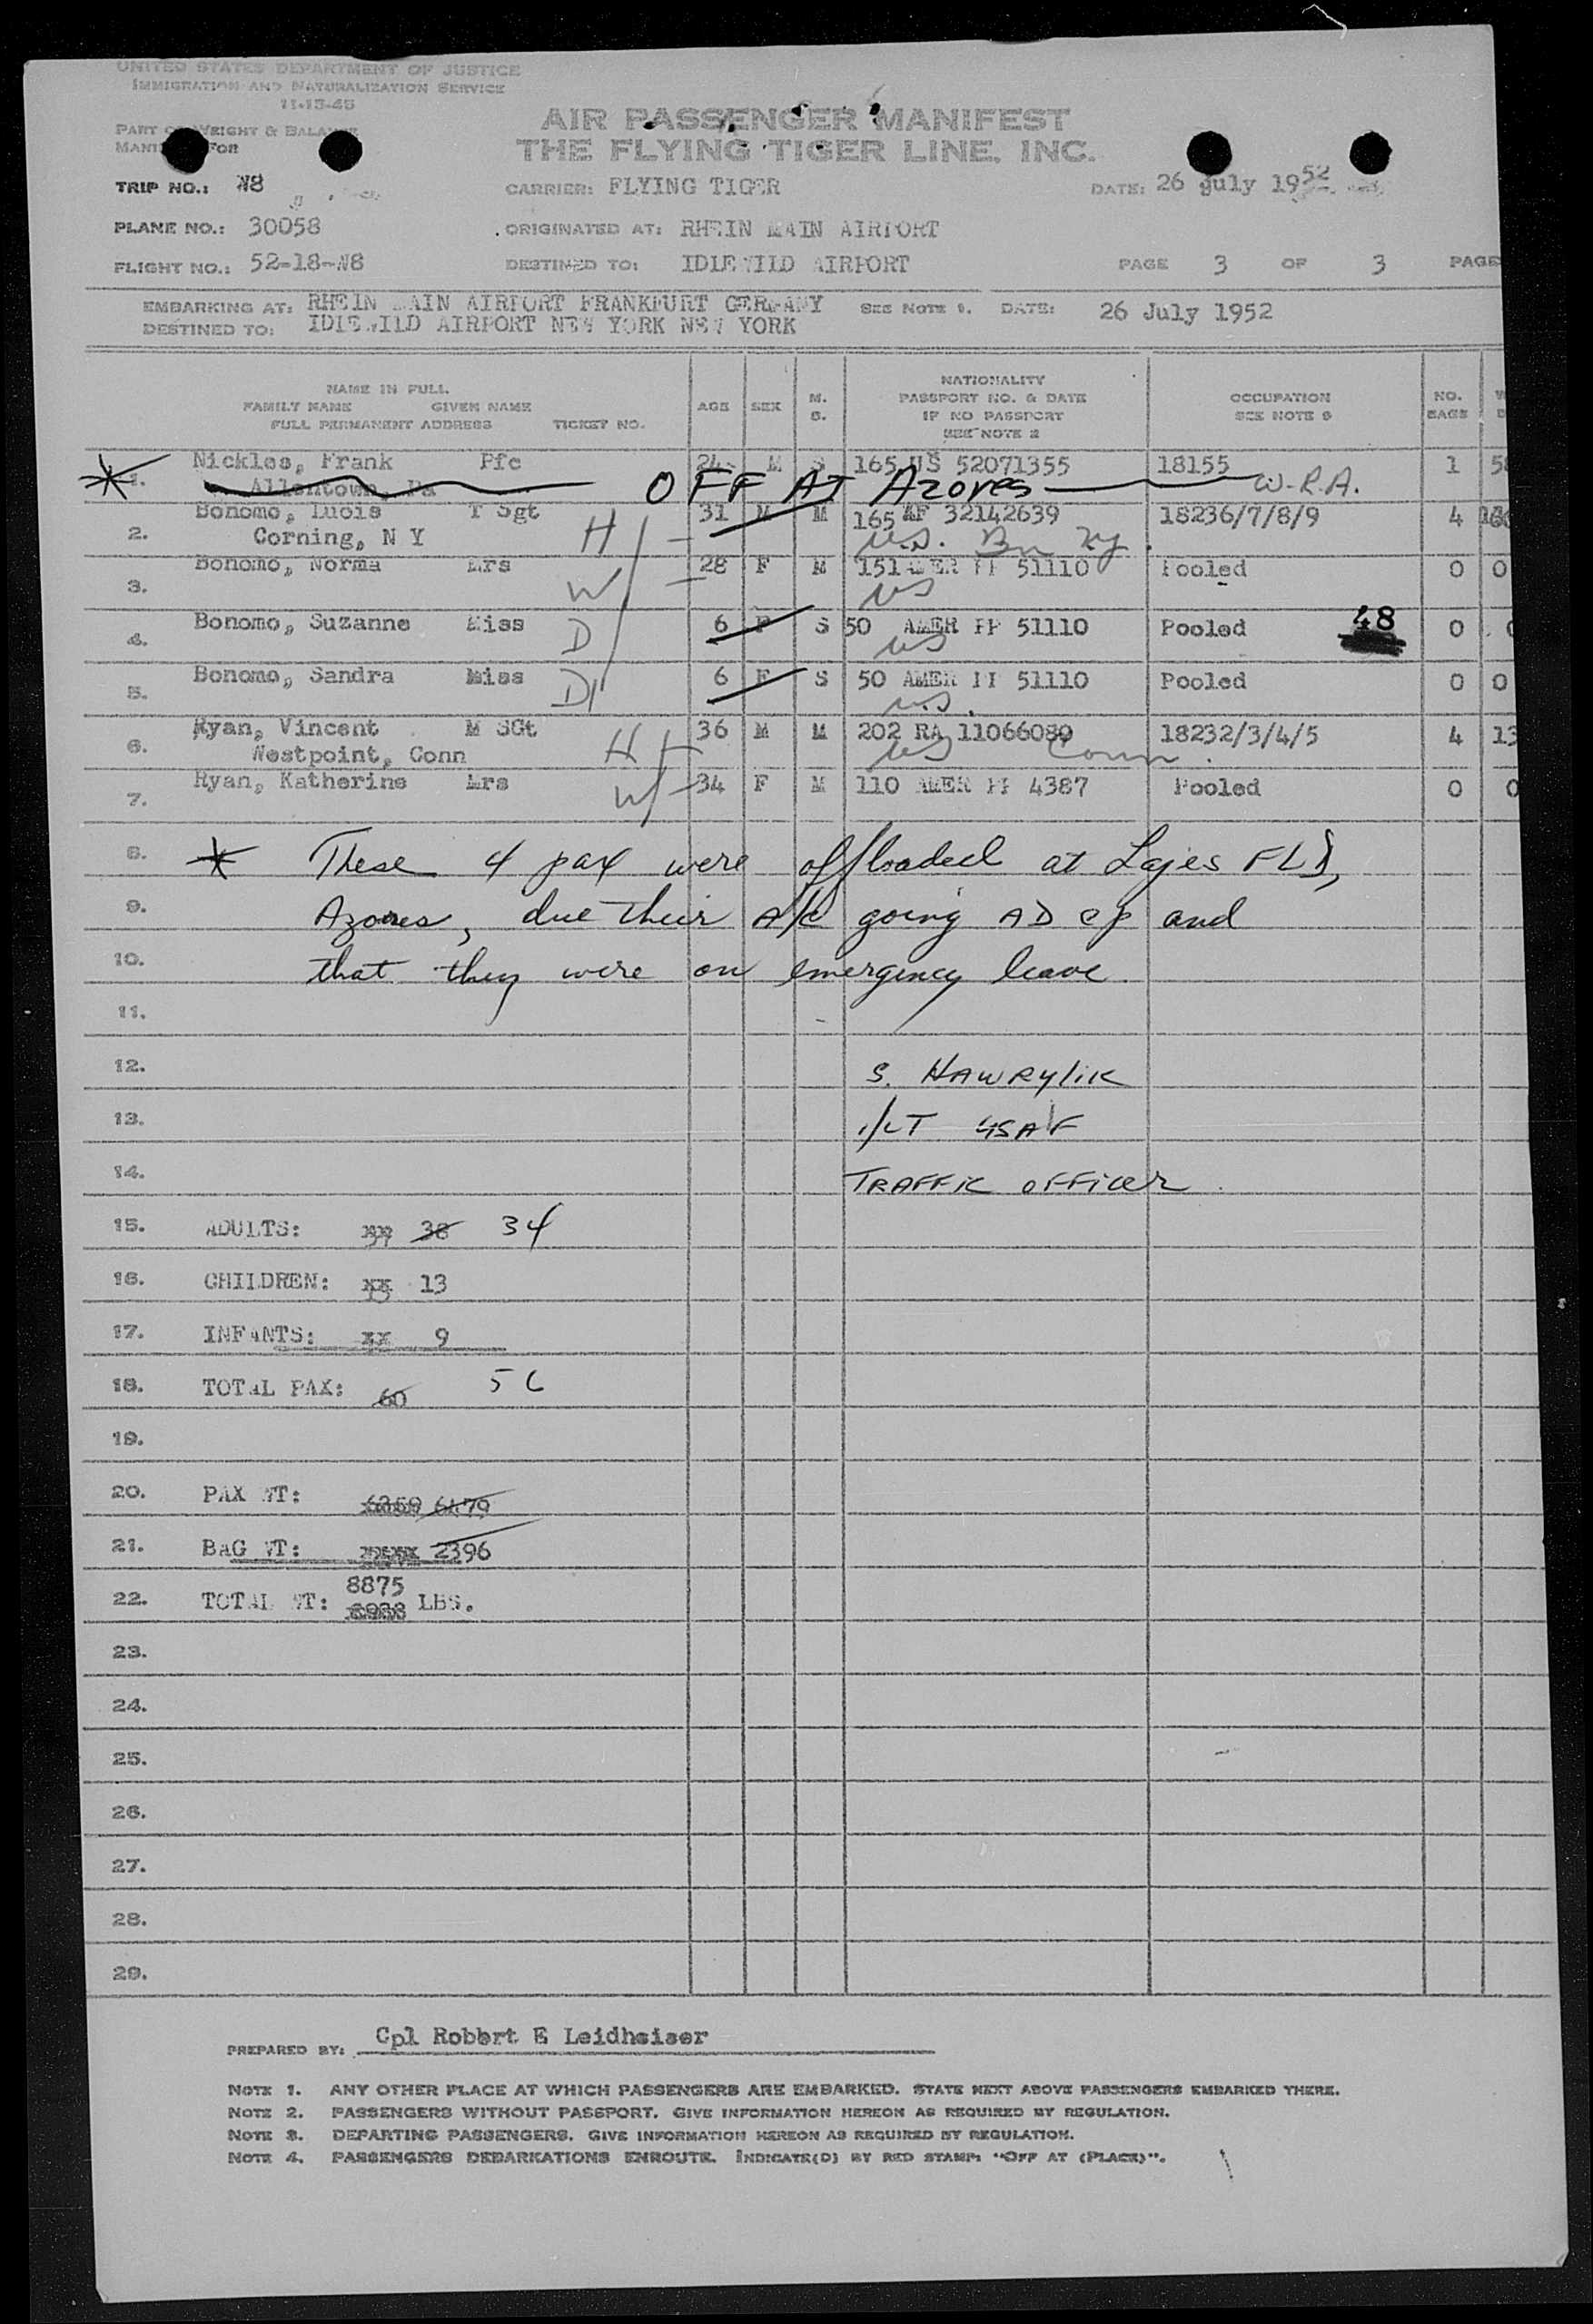 UNITED STATES DEPARTMENT OF JUSTICE
IMMIGRATION AND NATURALIZATION SERVICE
11-15-45
AIR PASSENGER MANIFEST
PART WEIGHT & BALANCE
THE FLYING TIGER LINE, INC.
FOR
TRIP NO.: W8 CARRIER: FLYING TIGER DATE: 26 July 1952
PLANE NO.: 30058 ORIGINATED AT: RHEIN MAIN AIRPORT
FLIGHT NO.: 52-18-W8 DESTINED TO: IDLEWILD AIRPORT PAGE 3 OF 3 PAGE
EMBARKING AT: RHEIN MAIN AIRPORT FRANKFURT GERMANY SEE NOTE 1. DATE: 26 July 1952
DESTINED TO: IDLEWILD AIRPORT NEW YORK NEW YORK
NAME IN FULL
FAMILY NAME GIVEN NAME
FULL PERMANENT ADDRESS TICKET NO.
AGE SEX M. S.
NATIONALITY
PASSPORT NO. & DATE
IF NO PASSPORT
SEE NOTE 2
OCCUPATION
SEE NOTE 3
NO. BAGS
* 1. Nickles, Frank Pfc 24 M S 165 US 52071355 18155 1
Allentown, Pa OFF AT Azores W.R.A.
2. Bonomo, Lucis T Sgt H 31 M M 165 AF 32142639 18236/7/8/9 4
Corning, N Y U.S.
3. Bonomo, Norma Mrs W 28 F M 151 AMER PP 51110 Pooled 0 0
US
4. Bonomo, Suzanne Miss D 6 F S 50 AMER PP 51110 Pooled 48 0
US
5. Bonomo, Sandra Miss D 6 F S 50 AMER PP 51110 Pooled 0 0
U.S.
6. Ryan, Vincent M SGt H 36 M M 202 RA 11066080 18232/3/4/5 4 13
Westpoint, Conn US Conn.
7. Ryan, Katherine Mrs W 34 F M 110 AMER PP 4387 Pooled 0 0
8. * These 4 pax were offloaded at Lajes FLD,
9. Azores, due their A/C going ADCP and
10. that they were on emergency leave.
11.
12. S. HAWRYliK
13. 1/LT USAF
14. TRAFFIC OFFICER
15. ADULTS: 38 34
16. CHILDREN: xx 13
17. INFANTS: xx 9
18. TOTAL PAX: 60 56
19.
20. PAX WT: 6479
21. BAG WT: 2396
8875
22. TOTAL WT: LBS.
23.
24.
25.
26.
27.
28.
29.
PREPARED BY: Cpl Robbrt E Leidheiser
NOTE 1. ANY OTHER PLACE AT WHICH PASSENGERS ARE EMBARKED. STATE NEXT ABOVE PASSENGERS EMBARKED THERE.
NOTE 2. PASSENGERS WITHOUT PASSPORT. GIVE INFORMATION HEREON AS REQUIRED BY REGULATION.
NOTE 3. DEPARTING PASSENGERS. GIVE INFORMATION HEREON AS REQUIRED BY REGULATION.
NOTE 4. PASSENGERS DEBARKATIONS ENROUTE. INDICATE(D) BY RED STAMP: "OFF AT (PLACE)".